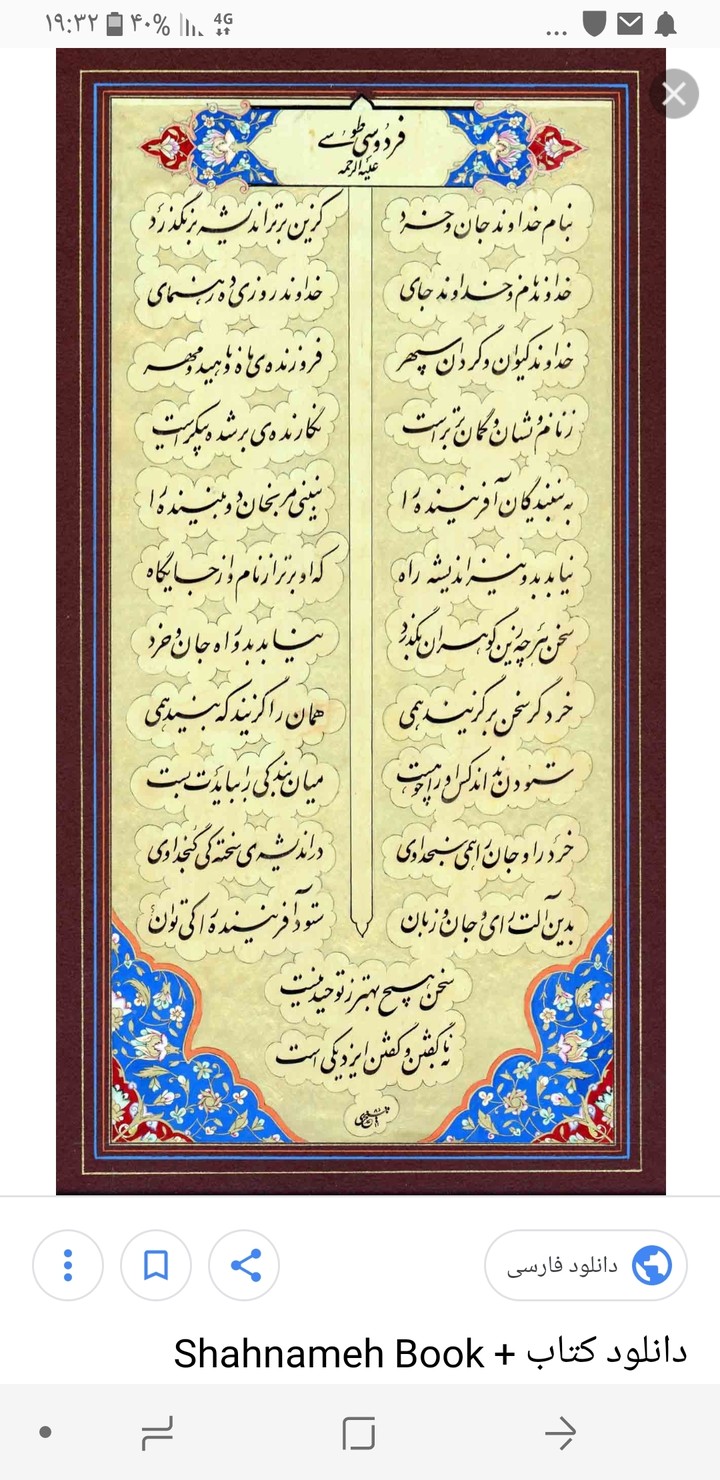 ۱۹:۳۲ ۴۰% 4G ...
فردوسی طوسی
علیه الرحمه
بنام خداوند جان و خرد کزین برتر اندیشه برنگذرد
خداوند نام و خداوند جای خداوند روزی ده رهنمای
خداوند کیوان و گردان سپهر فروزنده‌ی ماه و ناهید و مهر
ز نام و نشان و گمان برتر است نگارنده‌ی بر شده پیکر است
به بینندگان آفریننده را نبینی مرنجان دو بیننده را
نیابد بدو نیز اندیشه راه که او برتر از نام و از جایگاه
سخن هر چه زین گوهران بگذرد نیابد بدو راه جان و خرد
خرد گر سخن برگزیند همی همان را گزیند که بیند همی
ستودن نداند کس او را چو هست میان بندگی را ببایدت بست
خرد را و جان را همی سنجد اوی در اندیشه‌ی سخته کی گنجد اوی
بدین آلت رای و جان و زبان ستود آفریننده را کی توان
سخن هیچ بهتر ز توحید نیست
به ناگفتن و گفتن ایزد یکی است
دانلود فارسی
دانلود کتاب + Shahnameh Book